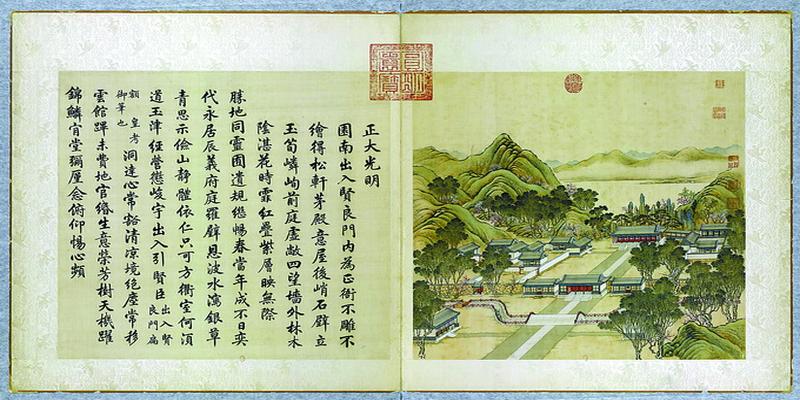 正大光明
園南出入賢良門內為正衙不雕不
繪得松軒茅殿意屋後峭石壁立
玉筍嶙峋前庭虛敞四望墻外林木
陰湛花時霏紅疊紫層映無際
勝地同靈囿遺規繼暢春當年成不日奕
代永居辰義府庭羅壁恩波水瀉銀草
青思示儉山靜體依仁只可方衢室何須
道玉津經營懲峻宇出入引賢臣 出入賢良門扁
額皇考御筆也 洞達心常豁清涼境絕塵常移
雲館蹕未費地官緡生意榮芳樹天機躍
錦鱗肯堂彌厪念俯仰惕心頻